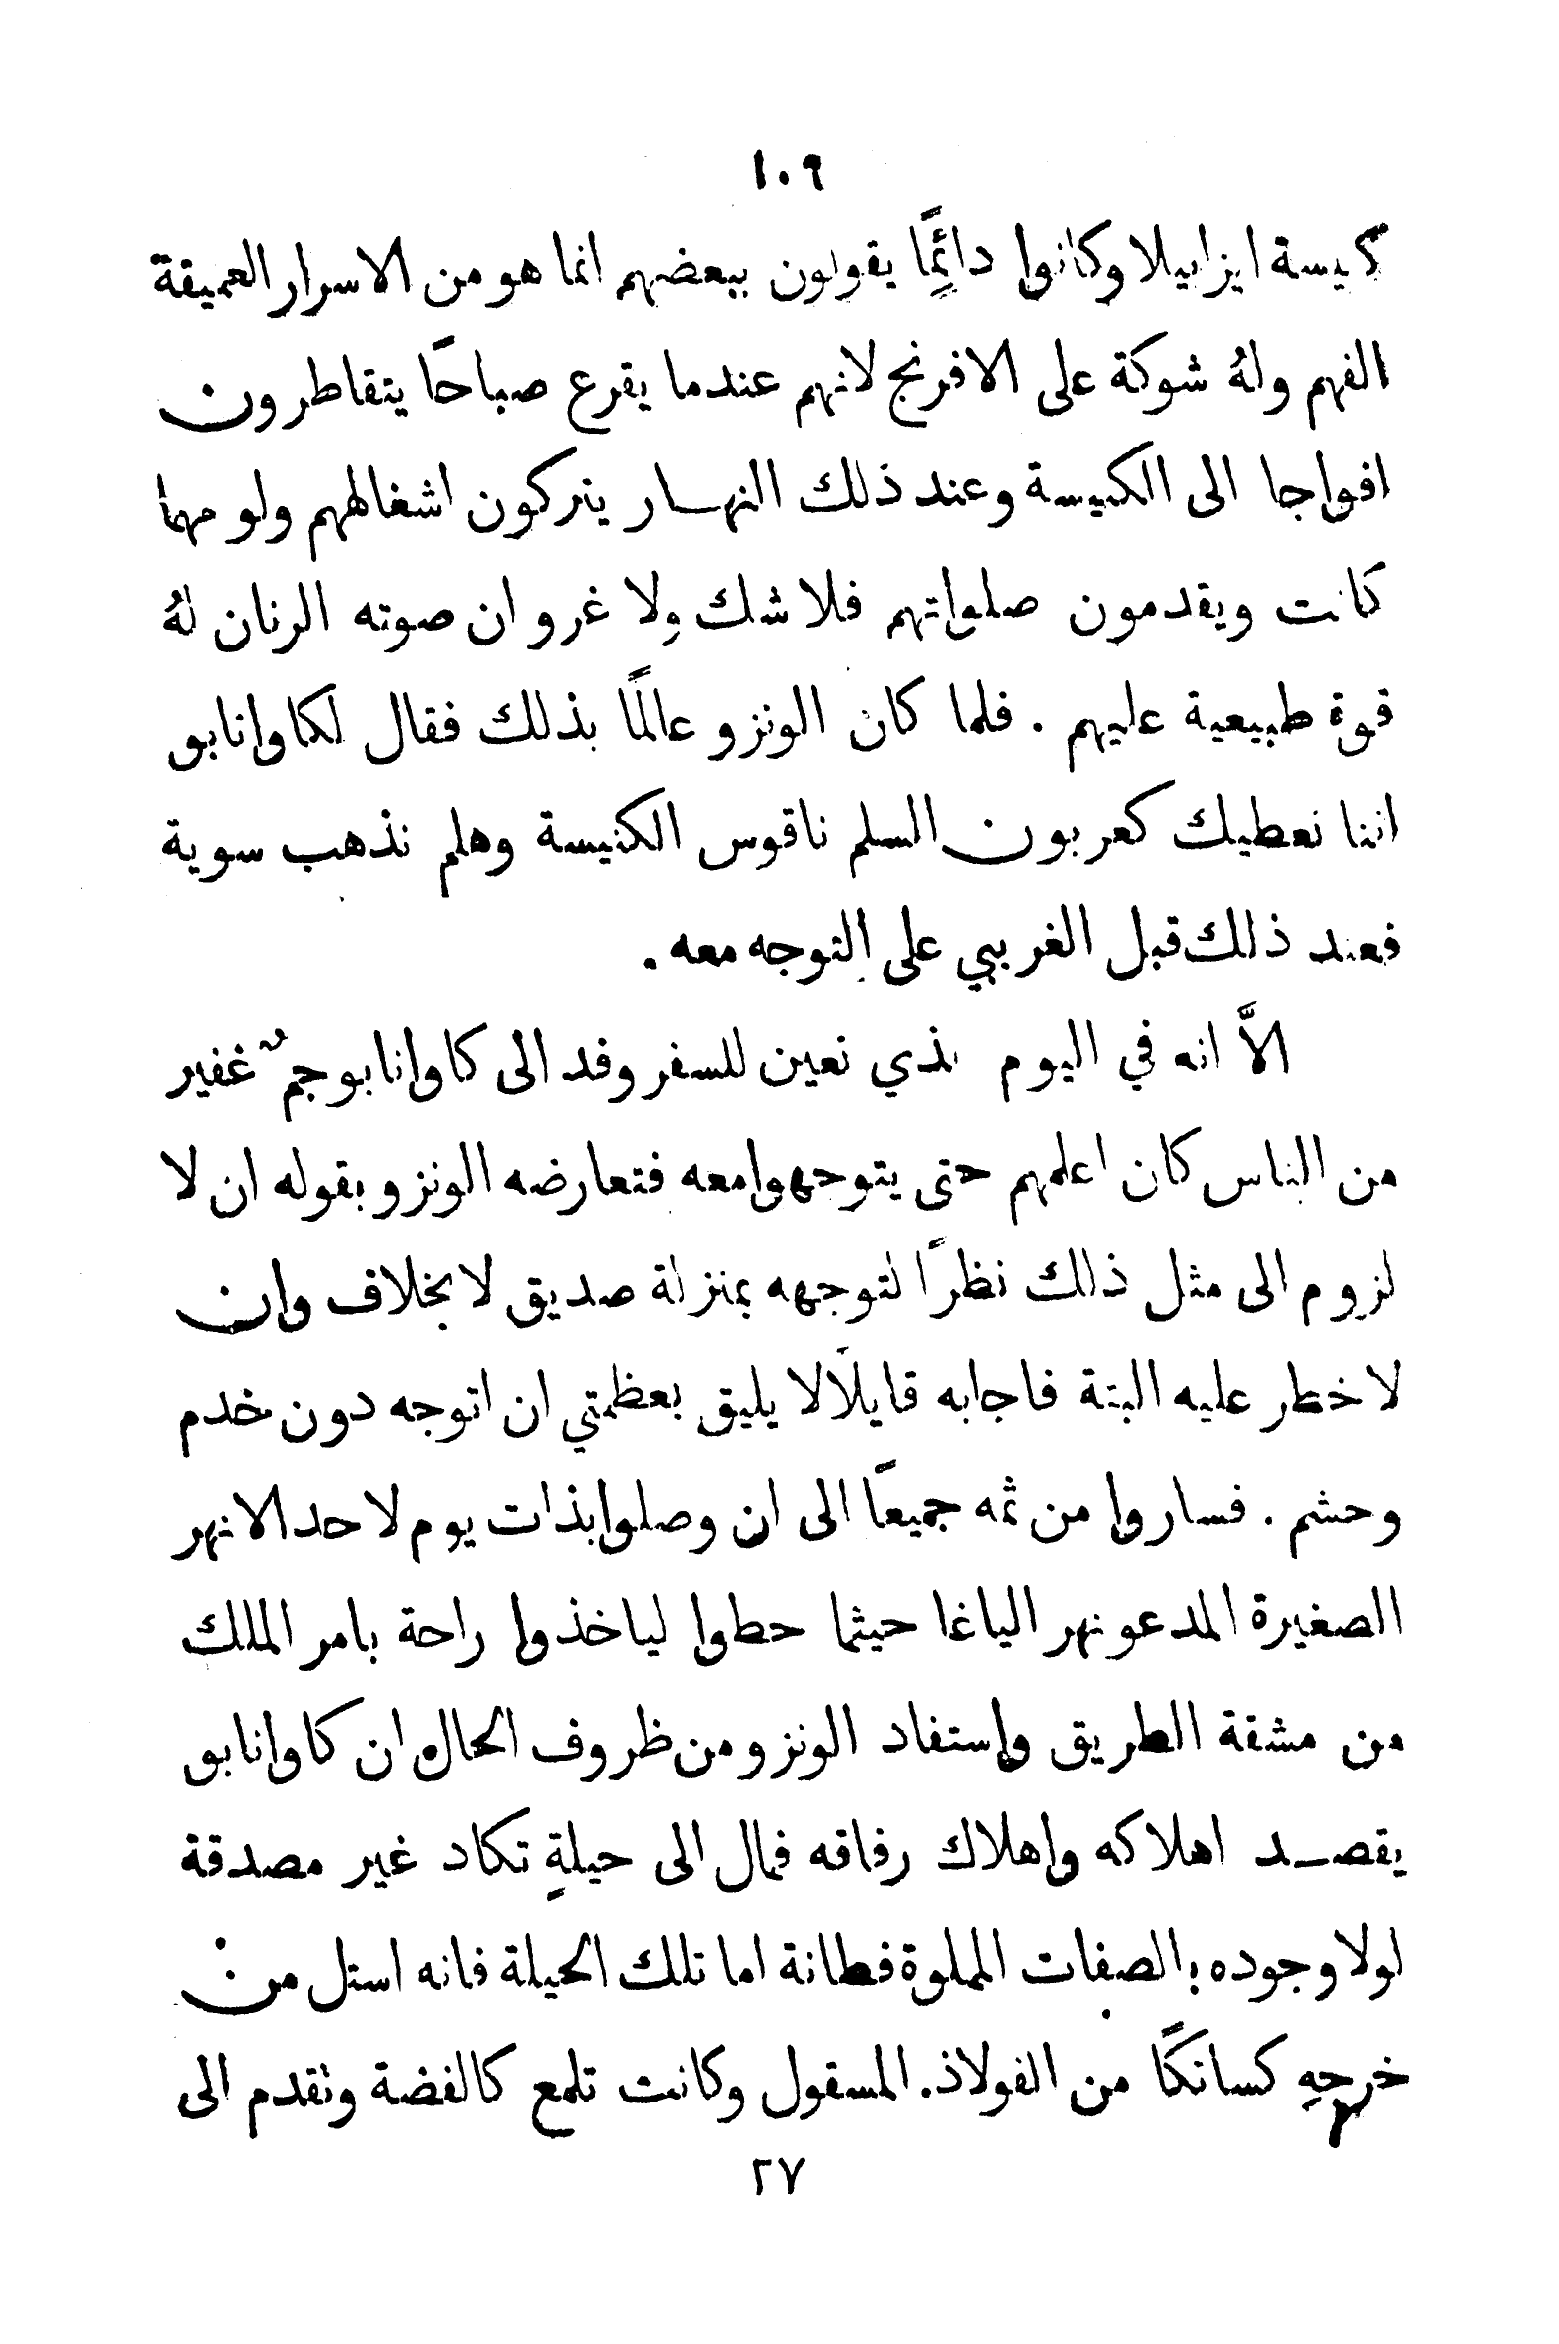 ١٠٩
كنيسة ايزابيلا وكانوا دائِمًا يقولون ببعضهم انما هو من الاسرار العميقة
الفهم ولهُ شوكة على الافرنج لانهم عندما يقرع صباحًا يتقاطرون
افواجا الى الكنيسة وعند ذلك النهار يتركون اشغالهم ولو مهما
كانت ويقدمون صلواتهم فلا شك ولا غرو ان صوته الرنان لهُ
قوة طبيعية عليهم . فلما كان الونزو عالمًا بذلك فقال لكاوانابو
اننا نعطيك كعربون السلم ناقوس الكنيسة وهلم نذهب سوية
فعند ذلك قبل الغريبي على التوجه معه .
الاَّ انه في اليوم الذي تعين للسفر وفد الى كاوانابو جمٌ غفير
من الناس كان اعلمهم حتى يتوجهوا معه فتعارضه الونزو بقوله ان لا
لزوم الى مثل ذلك نظرًا لتوجهه بمنزلة صديق لا بخلاف وان
لا خطر عليه البتة فاجابه قايلًا لا يليق بعظمتي ان اتوجه دون خدم
وحشم . فساروا من ثمه جميعًا الى ان وصلوا بذات يوم لاحد الانهر
الصغيرة المدعو نهر الياغا حيثما حطوا لياخذوا راحة بامر الملك
من مشقة الطريق واستفاد الونزو من ظروف الحال ان كاوانابو
يقصد اهلاكه واهلاك رفاقه فمال الى حيلةٍ تكاد غير مصدقة
لولا وجوده بالصفات المملوة فطانة اما تلك الحيلة فانه استل من
خرجهِ كسانكًا من الفولاذ. المسقول وكانت تلمع كالفضة وتقدم الى
٢٧